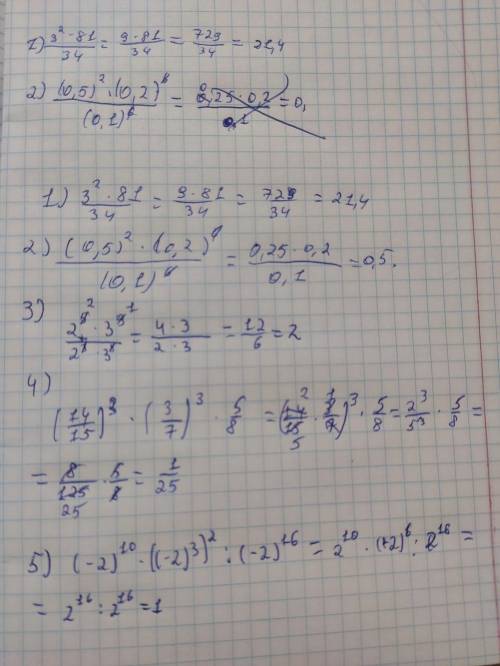 1) 3² · 81 / 34 = 9 · 81 / 34 = 729 / 34 = 21,4
2) (0,5)² · (0,2) / (0,1) = 0,25 · 0,2 / 0,1 = 0,
1) 3² · 81 / 34 = 9 · 81 / 34 = 729 / 34 = 21,4
2) (0,5)² · (0,2) / (0,1) = 0,25 · 0,2 / 0,1 = 0,5.
3)
= 4 · 3 / 2 · 3 = 12 / 6 = 2
4)
(14/15)³ · (3/7)³ · 5/8 = (14/15 · 3/7)³ · 5/8 = 2³/5³ · 5/8 =
= 8/125 · 5/8 = 1/25
5) (-2)¹⁰ · ((-2)³)² : (-2)¹⁶ = 2¹⁰ · (-2)⁶ : 2¹⁶ =
= 2¹⁶ : 2¹⁶ = 1